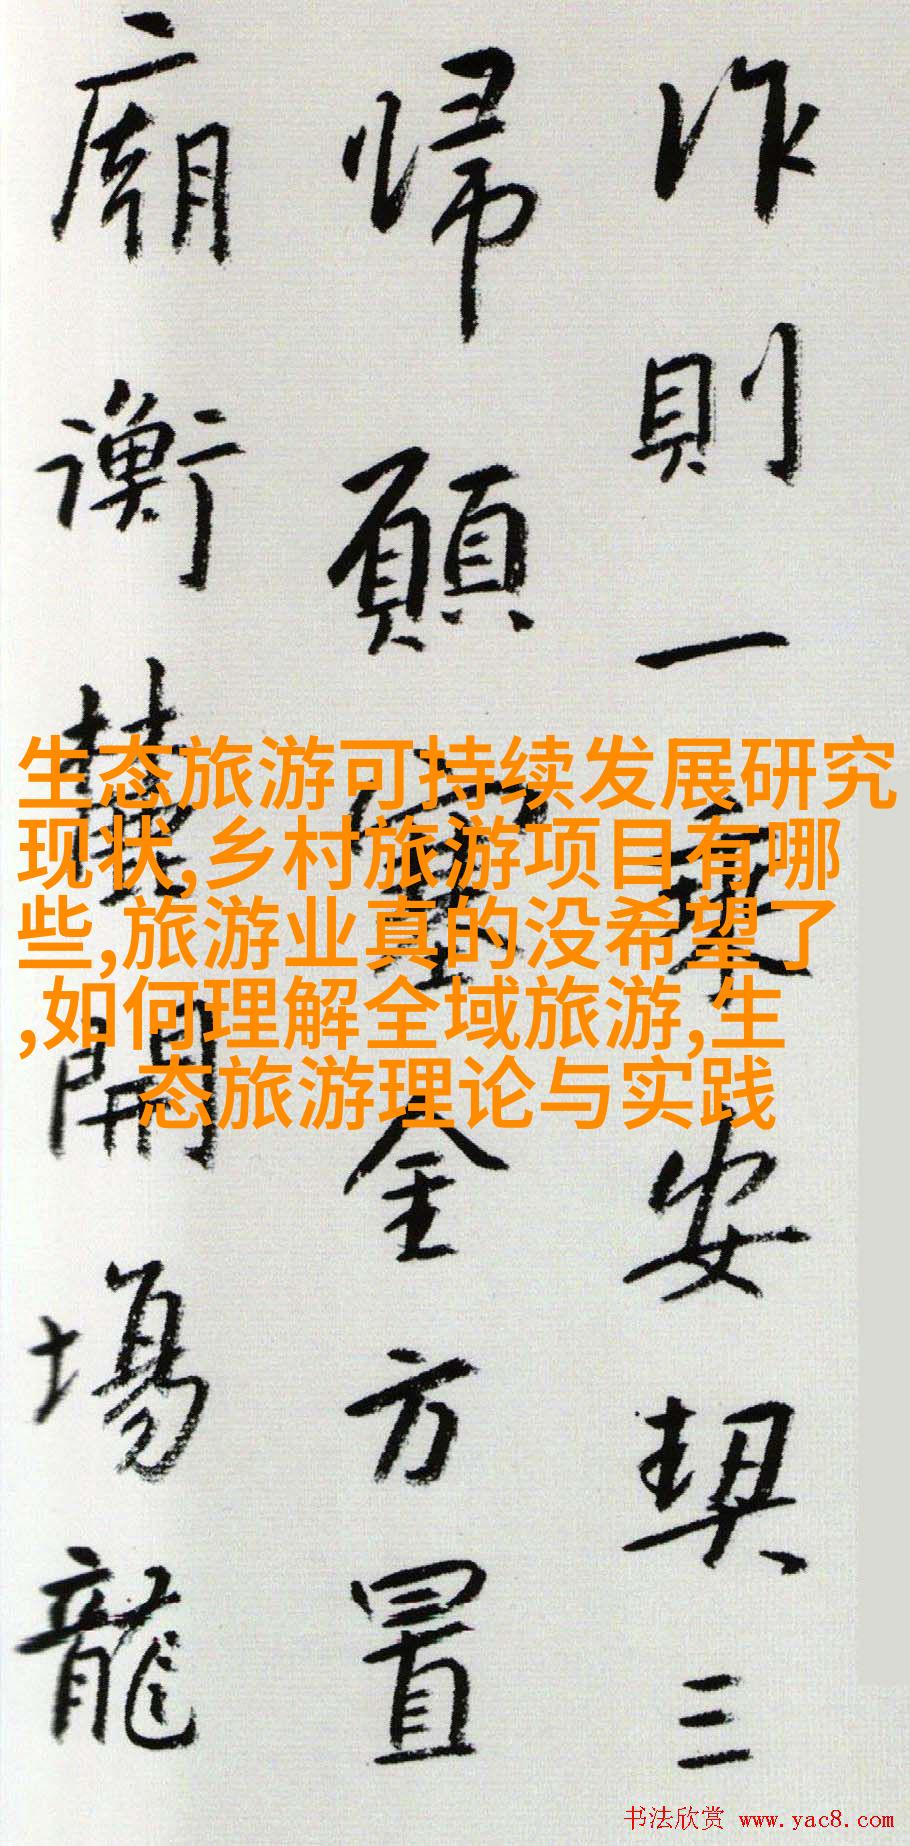 作則一乘安契三
歸願靈金方置
廟衡藏開場龍
生态旅游可持续发展研究
现状,乡村旅游项目有哪
些,旅游业真的没希望了
,如何理解全域旅游,生
态旅游理论与实践
书法欣赏 www.yac8.com